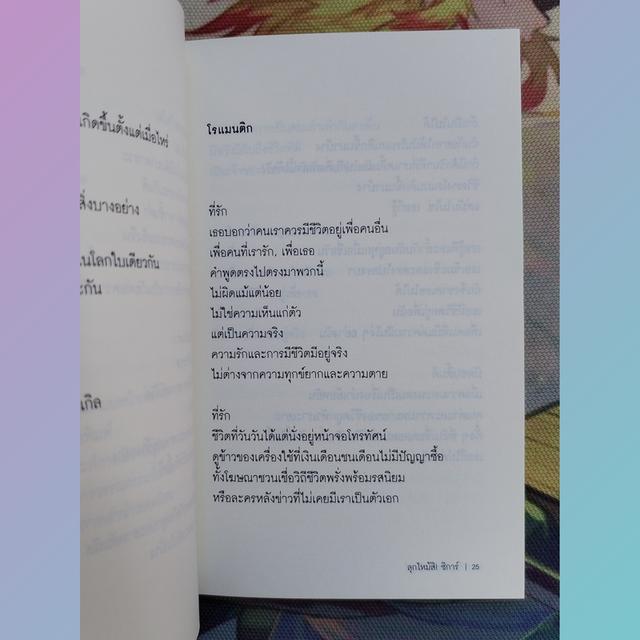 เกิดขึ้นตั้งแต่เมื่อไหร่
สิ่งบางอย่าง
นโลกใบเดียวกัน
ะกัน
เกิล
โรแมนติก
ที่รัก
เธอบอกว่าคนเราควรมีชีวิตอยู่เพื่อคนอื่น
เพื่อคนที่เรารัก, เพื่อเธอ
คำพูดตรงไปตรงมาพวกนี้
ไม่ผิดแม้แต่น้อย
ไม่ใช่ความเห็นแก่ตัว
แต่เป็นความจริง
ความรักและการมีชีวิตมีอยู่จริง
ไม่ต่างจากความทุกข์ยากและความตาย
ที่รัก
ชีวิตที่วันวันได้แต่นั่งอยู่หน้าจอโทรทัศน์
ดูข้าวของเครื่องใช้ที่เงินเดือนชนเดือนไม่มีปัญญาซื้อ
ทั้งโฆษณาชวนเชื่อวิถีชีวิตพรั่งพร้อมรสนิยม
หรือละครหลังข่าวที่ไม่เคยมีเราเป็นตัวเอก
ลุกไหม้สิ! ซิการ์ | 25